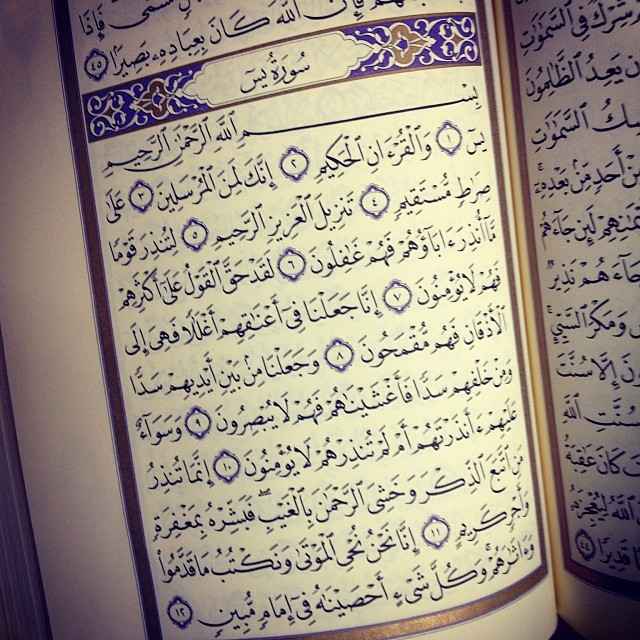 فِي ٱلسَّمَٰوَٰتِ
يَعِدُ ٱلظَّٰلِمُونَ
ٱلسَّمَٰوَٰتِ
مِنْ أَحَدٍ مِّنۢ بَعْدِهِۦٓ
لَئِن جَآءَهُمْ
جَآءَهُمْ نَذِيرٌ
وَمَكْرَ ٱلسَّيِّئِ
إِلَّا سُنَّتَ
سُنَّتِ ٱللَّهِ
كَانَ عَٰقِبَةُ
ٱللَّهُ لِيُعْجِزَهُۥ
قَدِيرًا ٤٤
فَإِذَا
فَإِنَّ ٱللَّهَ كَانَ بِعِبَادِهِۦ بَصِيرًۢا ٤٥
سُورَةُ يسٓ
بِسْمِ ٱللَّهِ ٱلرَّحْمَٰنِ ٱلرَّحِيمِ
يسٓ ١ وَٱلْقُرْءَانِ ٱلْحَكِيمِ ٢ إِنَّكَ لَمِنَ ٱلْمُرْسَلِينَ ٣ عَلَىٰ
صِرَٰطٍ مُّسْتَقِيمٍ ٤ تَنزِيلَ ٱلْعَزِيزِ ٱلرَّحِيمِ ٥ لِتُنذِرَ قَوْمًا
مَّآ أُنذِرَ ءَابَآؤُهُمْ فَهُمْ غَٰفِلُونَ ٦ لَقَدْ حَقَّ ٱلْقَوْلُ عَلَىٰٓ أَكْثَرِهِمْ
فَهُمْ لَا يُؤْمِنُونَ ٧ إِنَّا جَعَلْنَا فِىٓ أَعْنَٰقِهِمْ أَغْلَٰلًا فَهِىَ إِلَى
ٱلْأَذْقَانِ فَهُم مُّقْمَحُونَ ٨ وَجَعَلْنَا مِنۢ بَيْنِ أَيْدِيهِمْ سَدًّا
وَمِنْ خَلْفِهِمْ سَدًّا فَأَغْشَيْنَٰهُمْ فَهُمْ لَا يُبْصِرُونَ ٩ وَسَوَآءٌ
عَلَيْهِمْ ءَأَنذَرْتَهُمْ أَمْ لَمْ تُنذِرْهُمْ لَا يُؤْمِنُونَ ١٠ إِنَّمَا تُنذِرُ
مَنِ ٱتَّبَعَ ٱلذِّكْرَ وَخَشِىَ ٱلرَّحْمَٰنَ بِٱلْغَيْبِ ۖ فَبَشِّرْهُ بِمَغْفِرَةٍ
وَأَجْرٍ كَرِيمٍ ١١ إِنَّا نَحْنُ نُحْىِ ٱلْمَوْتَىٰ وَنَكْتُبُ مَا قَدَّمُوا۟
وَءَاثَٰرَهُمْ ۚ وَكُلَّ شَىْءٍ أَحْصَيْنَٰهُ فِىٓ إِمَامٍ مُّبِينٍ ١٢